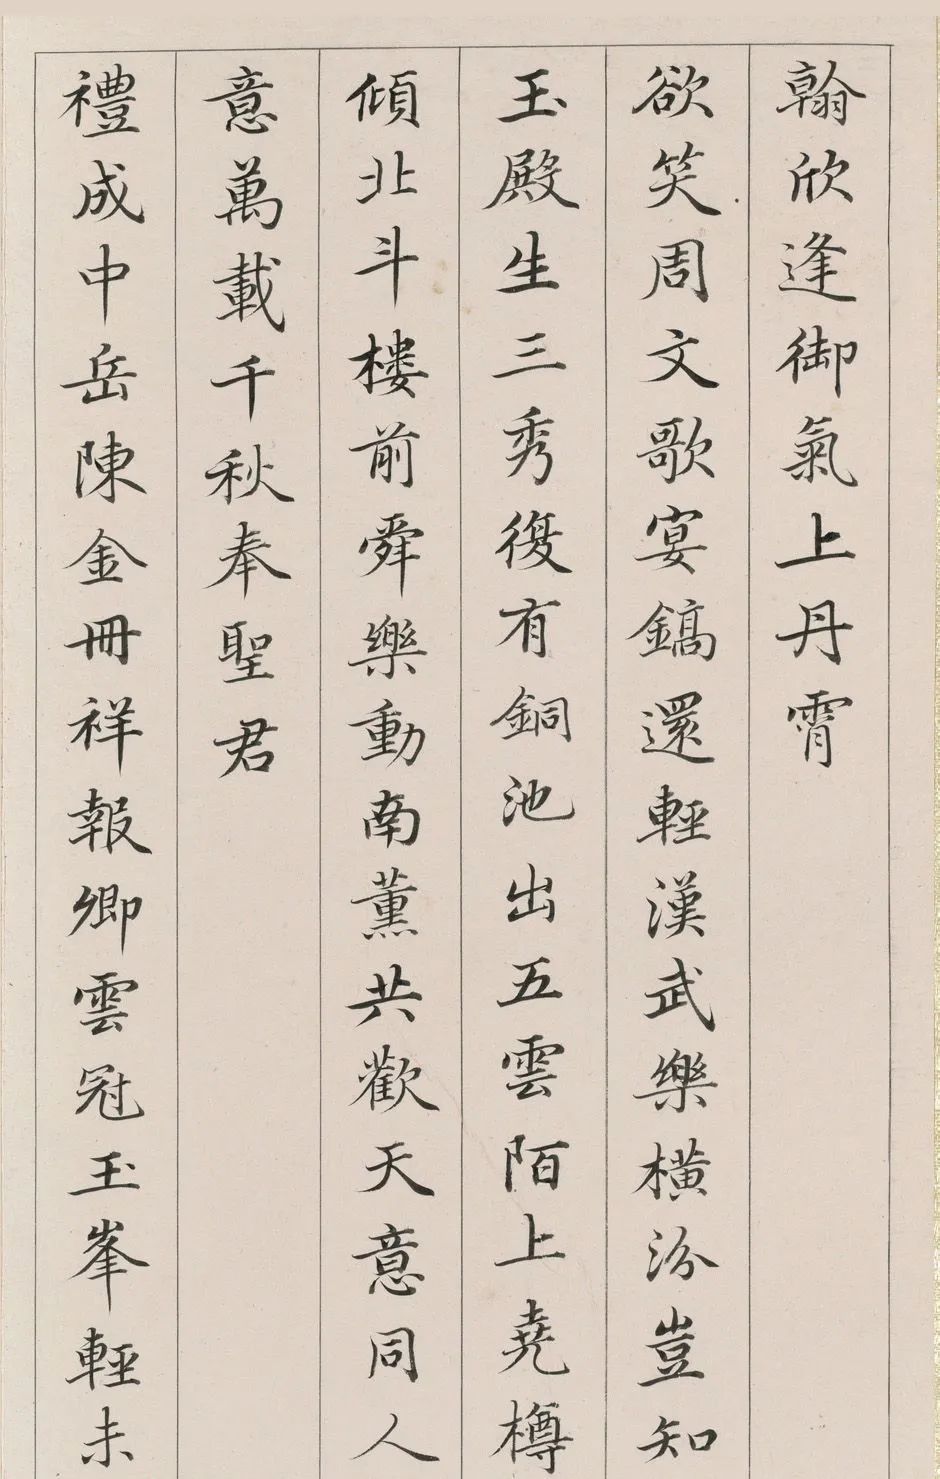 翰欣逢御氣上丹霄
欲笑周文歌宴鎬還輕漢武樂橫汾豈知
玉殿生三秀復有銅池出五雲陌上堯樽
傾北斗樓前舜樂動南薰共歡天意同人
意萬載千秋奉聖君
禮成中岳陳金冊祥報卿雲冠玉峯輕未